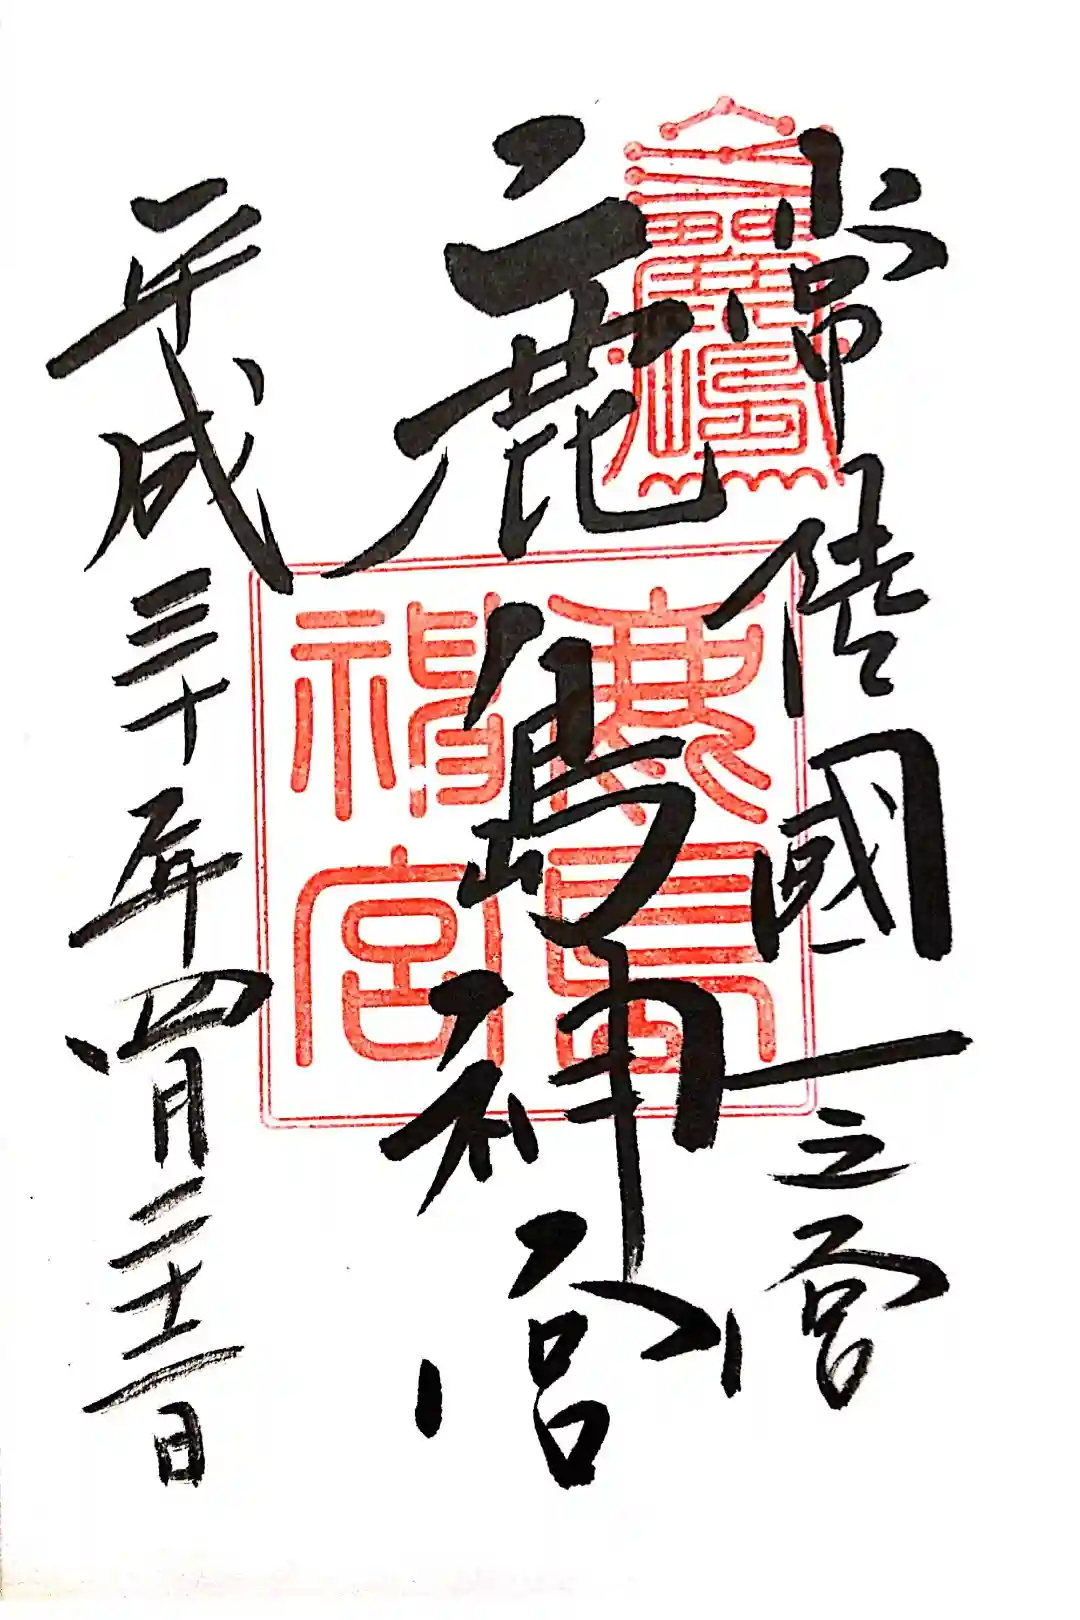 常陸國一之宮
鹿島神宮
平成三十年四月二十三日
鹿島
神宮